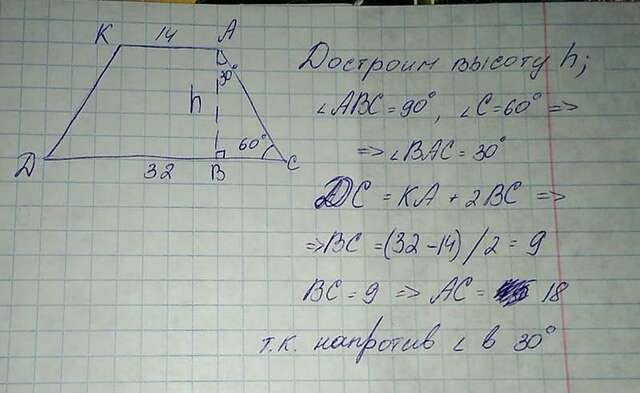 K 14 A
30°
h
60°
Д 32 B C
Достроим высоту h;
∠ABC = 90°, ∠C = 60° =>
=> ∠BAC = 30°
ДC = KA + 2BC =>
=> BC = (32 - 14) / 2 = 9
BC = 9 => AC = 18
т.к. напротив ∠ в 30°